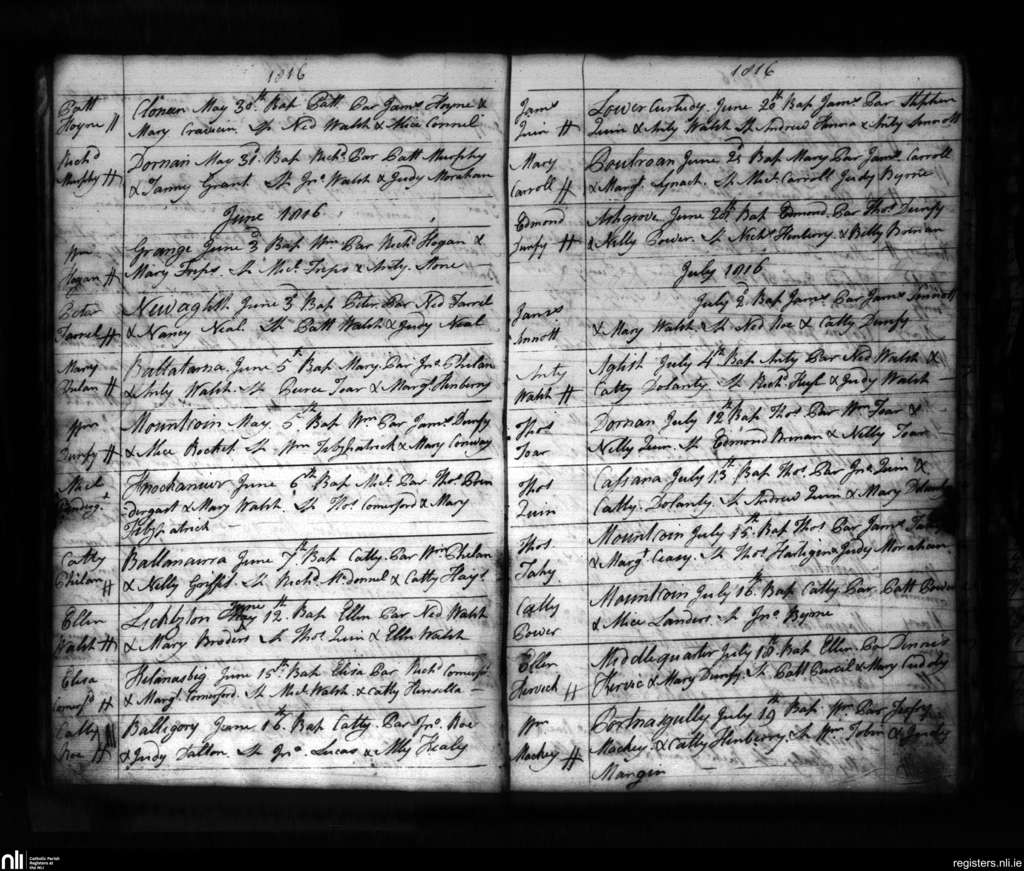 1816
Patt Hoyne // Clonan May 30th Bap Patt Par Jams Hoyne &
Mary Sp Ned Walsh & Alice Connel
Richd Murphy # Dornan May 31 Bap Richd Par Patt Murphy
& Fanny Grant Sp Jno Walsh & Judy Morahan
June 1816
Wm Hogan # Grange June 3 Bap Wm Par Richd Hogan &
Mary Freps Sp Micl Freps & Anty Hone
Peter Farrel # Newaghh June 3 Bap Peter Par Ned Farrel
& Nancy Neal Sp Patt Walsh & Judy Neal
Mary Phelan # Ballatarna June 5th Bap Mary Par Jno Phelan
& Anty Walsh Sp Peirce Toar & Margt Henberry
Wm Dunfy # Mountcoin May 5th Bap Wm Par Jams Dunfy
& Alice Rocket Sp Wm Fitzpatrick & Mary Conway
Micl Knockanure June 6th Bap Micl Par Thos Prin
dirgast & Mary Walsh Sp Thos Comerford & Mary
Fitzpatrick
Catty Phelan # Ballanaurra June 7th Bap Catty Par Wm Phelan
& Nelly Griffit Sp Richd McDonnel & Catty Hays
Ellen Walsh # Licktyton June 12th Bap Ellen Par Ned Walsh
& Mary Broders Sp Thos Quin & Ellen Walsh
Elisa # June 15th Bap Elisa Par Richd
& Margt Comerford Sp Micl Walsh & Catty
Catty Roe # Balligory June 16th Bap Catty Par Jno Roe
& Judy Fallon Sp Jno Lucas & Ally Healy
1816
Jams Quin # Lower Curtudy June 20th Bap Jams Par Stephen
Quin & Anty Walsh Sp Andrew & Anty Sinnott
Mary Carroll # June 25 Bap Mary Par Jams Carroll
& Margt Synach Sp Micl Carroll Judy Byrne
Edmond Dunfy # Ashgrove June 28th Bap Edmond Par Thos Dunfy
& Nelly Power Sp Nichs Henberry & Betty Brenan
July 1816
James Sinnott July 2d Bap Jams Par Jams Sinnott
& Mary Walsh Sp Ned Roe & Catty Dunfy
Anty Walsh # Aglish July 4th Bap Anty Par Ned Walsh &
Catty Dolanty Sp Richd & Judy Walsh
Thos Toar Dornan July 12th Bap Thos Par Wm Toar &
Nelly Quin Sp Edmond Brenan & Nelly Toar
Thos Quin Cassana July 13th Bap Thos Par Jno Quin &
Catty Dolanty Sp Andrew Quin & Mary Dolanty
Thos Fahy Mountcoin July 15th Bap Thos Par Jams Fahy
& Margt Ceasy Sp Thos & Judy Morahan
Catty Power Mountcoin July 16th Bap Catty Par Patt Power
& Alice Landers Sp Jno Byrne
Ellen Hervich # Middlequarter July 18th Bap Ellen Par Dennis
Hervic & Mary Dunfy Sp Patt Purcel & Mary Cuddy
Wm Mackey # Portnascully July 19th Bap Wm Par Jeffry
Mackey & Catty Henberry Sp Wm Tobin & Judy
Mangin
nli
Catholic Parish
Registers at
the NLI
registers.nli.ie